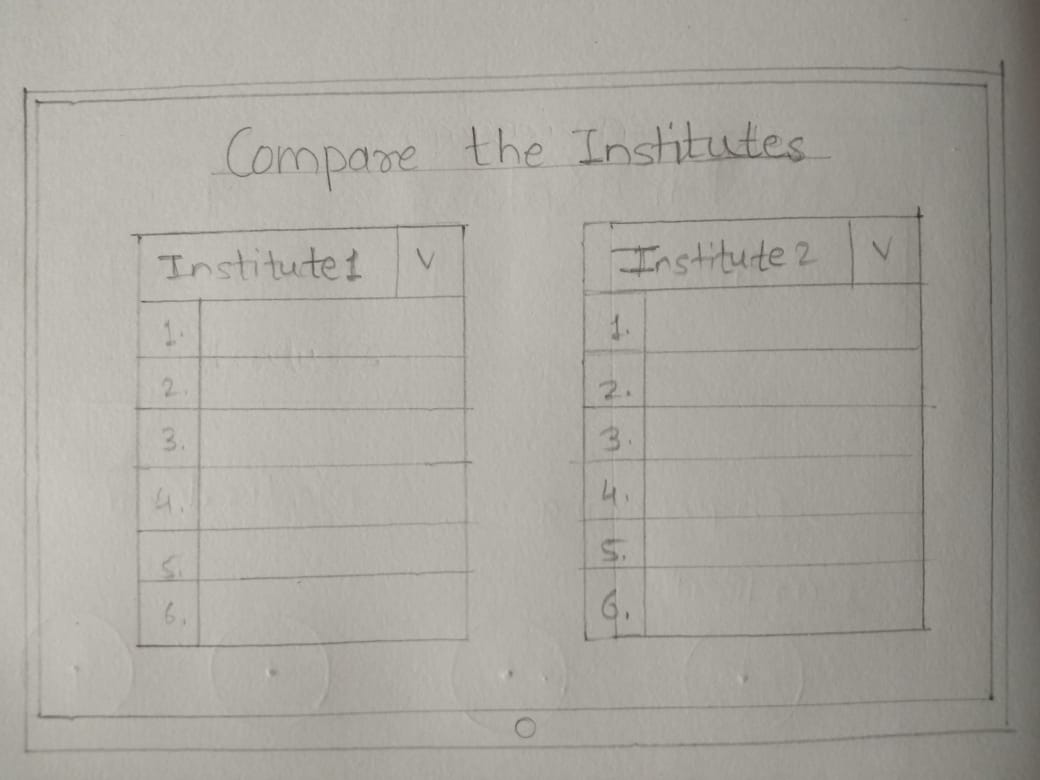 Compare the Institutes
Institute1 V
1.
2.
3.
4.
5.
6.
Institute 2 V
1.
2.
3.
4.
5.
6.